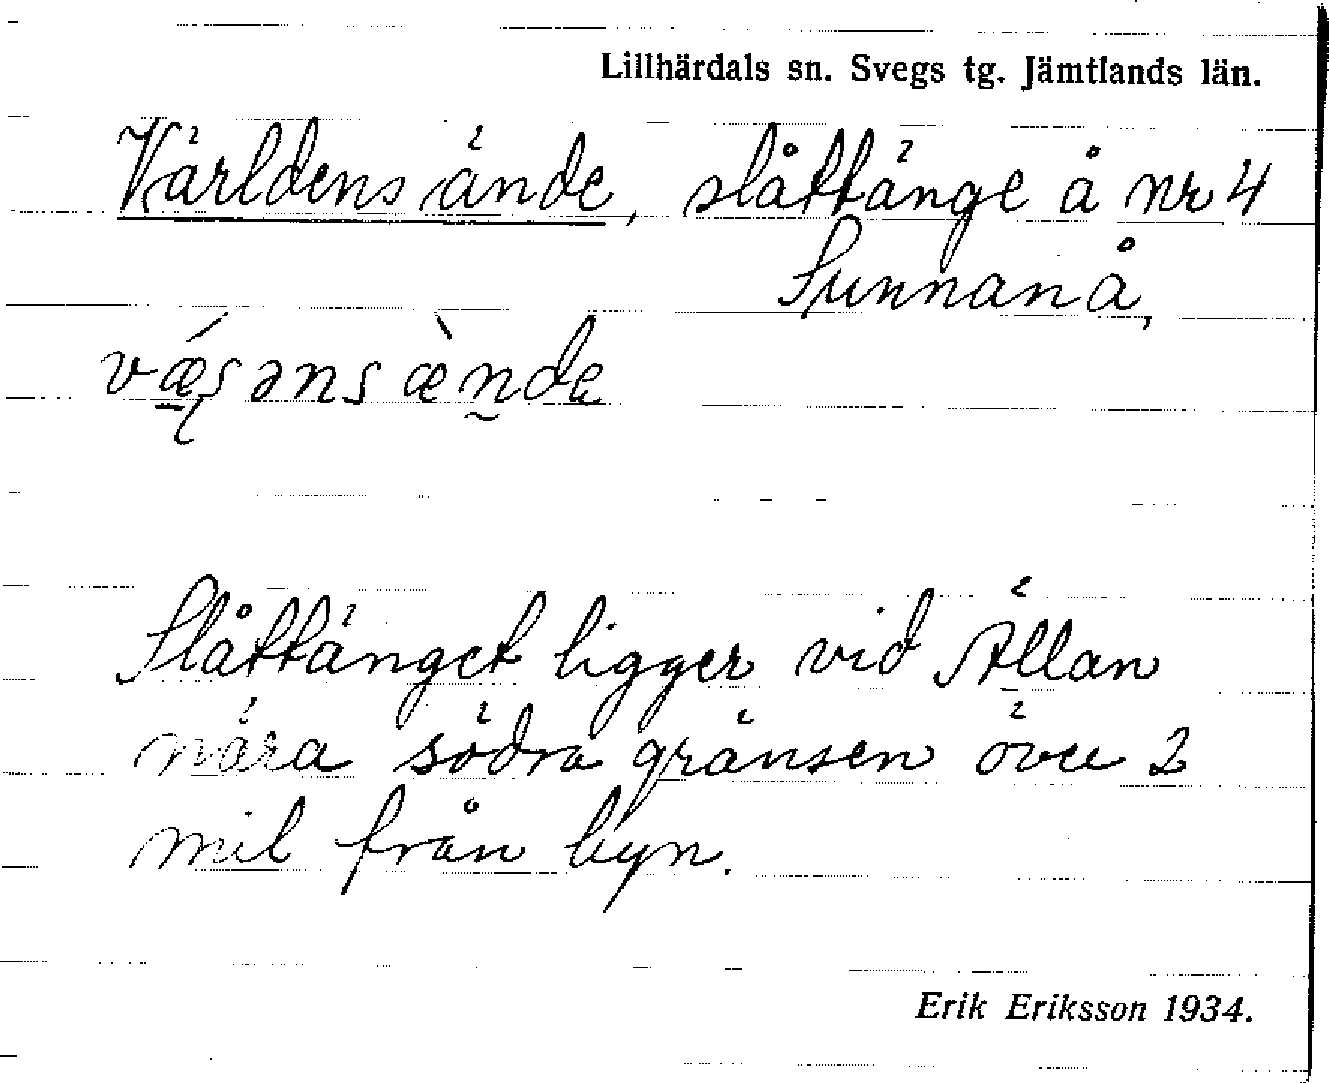 Lillhärdals sn. Svegs tg. Jämtlands län.
Världens ände, slåttänge å nr 4
Sunnanå,
Slåttänget ligger vid Ällan
nära södra gränsen över 2
mil från byn.
Erik Eriksson 1934.